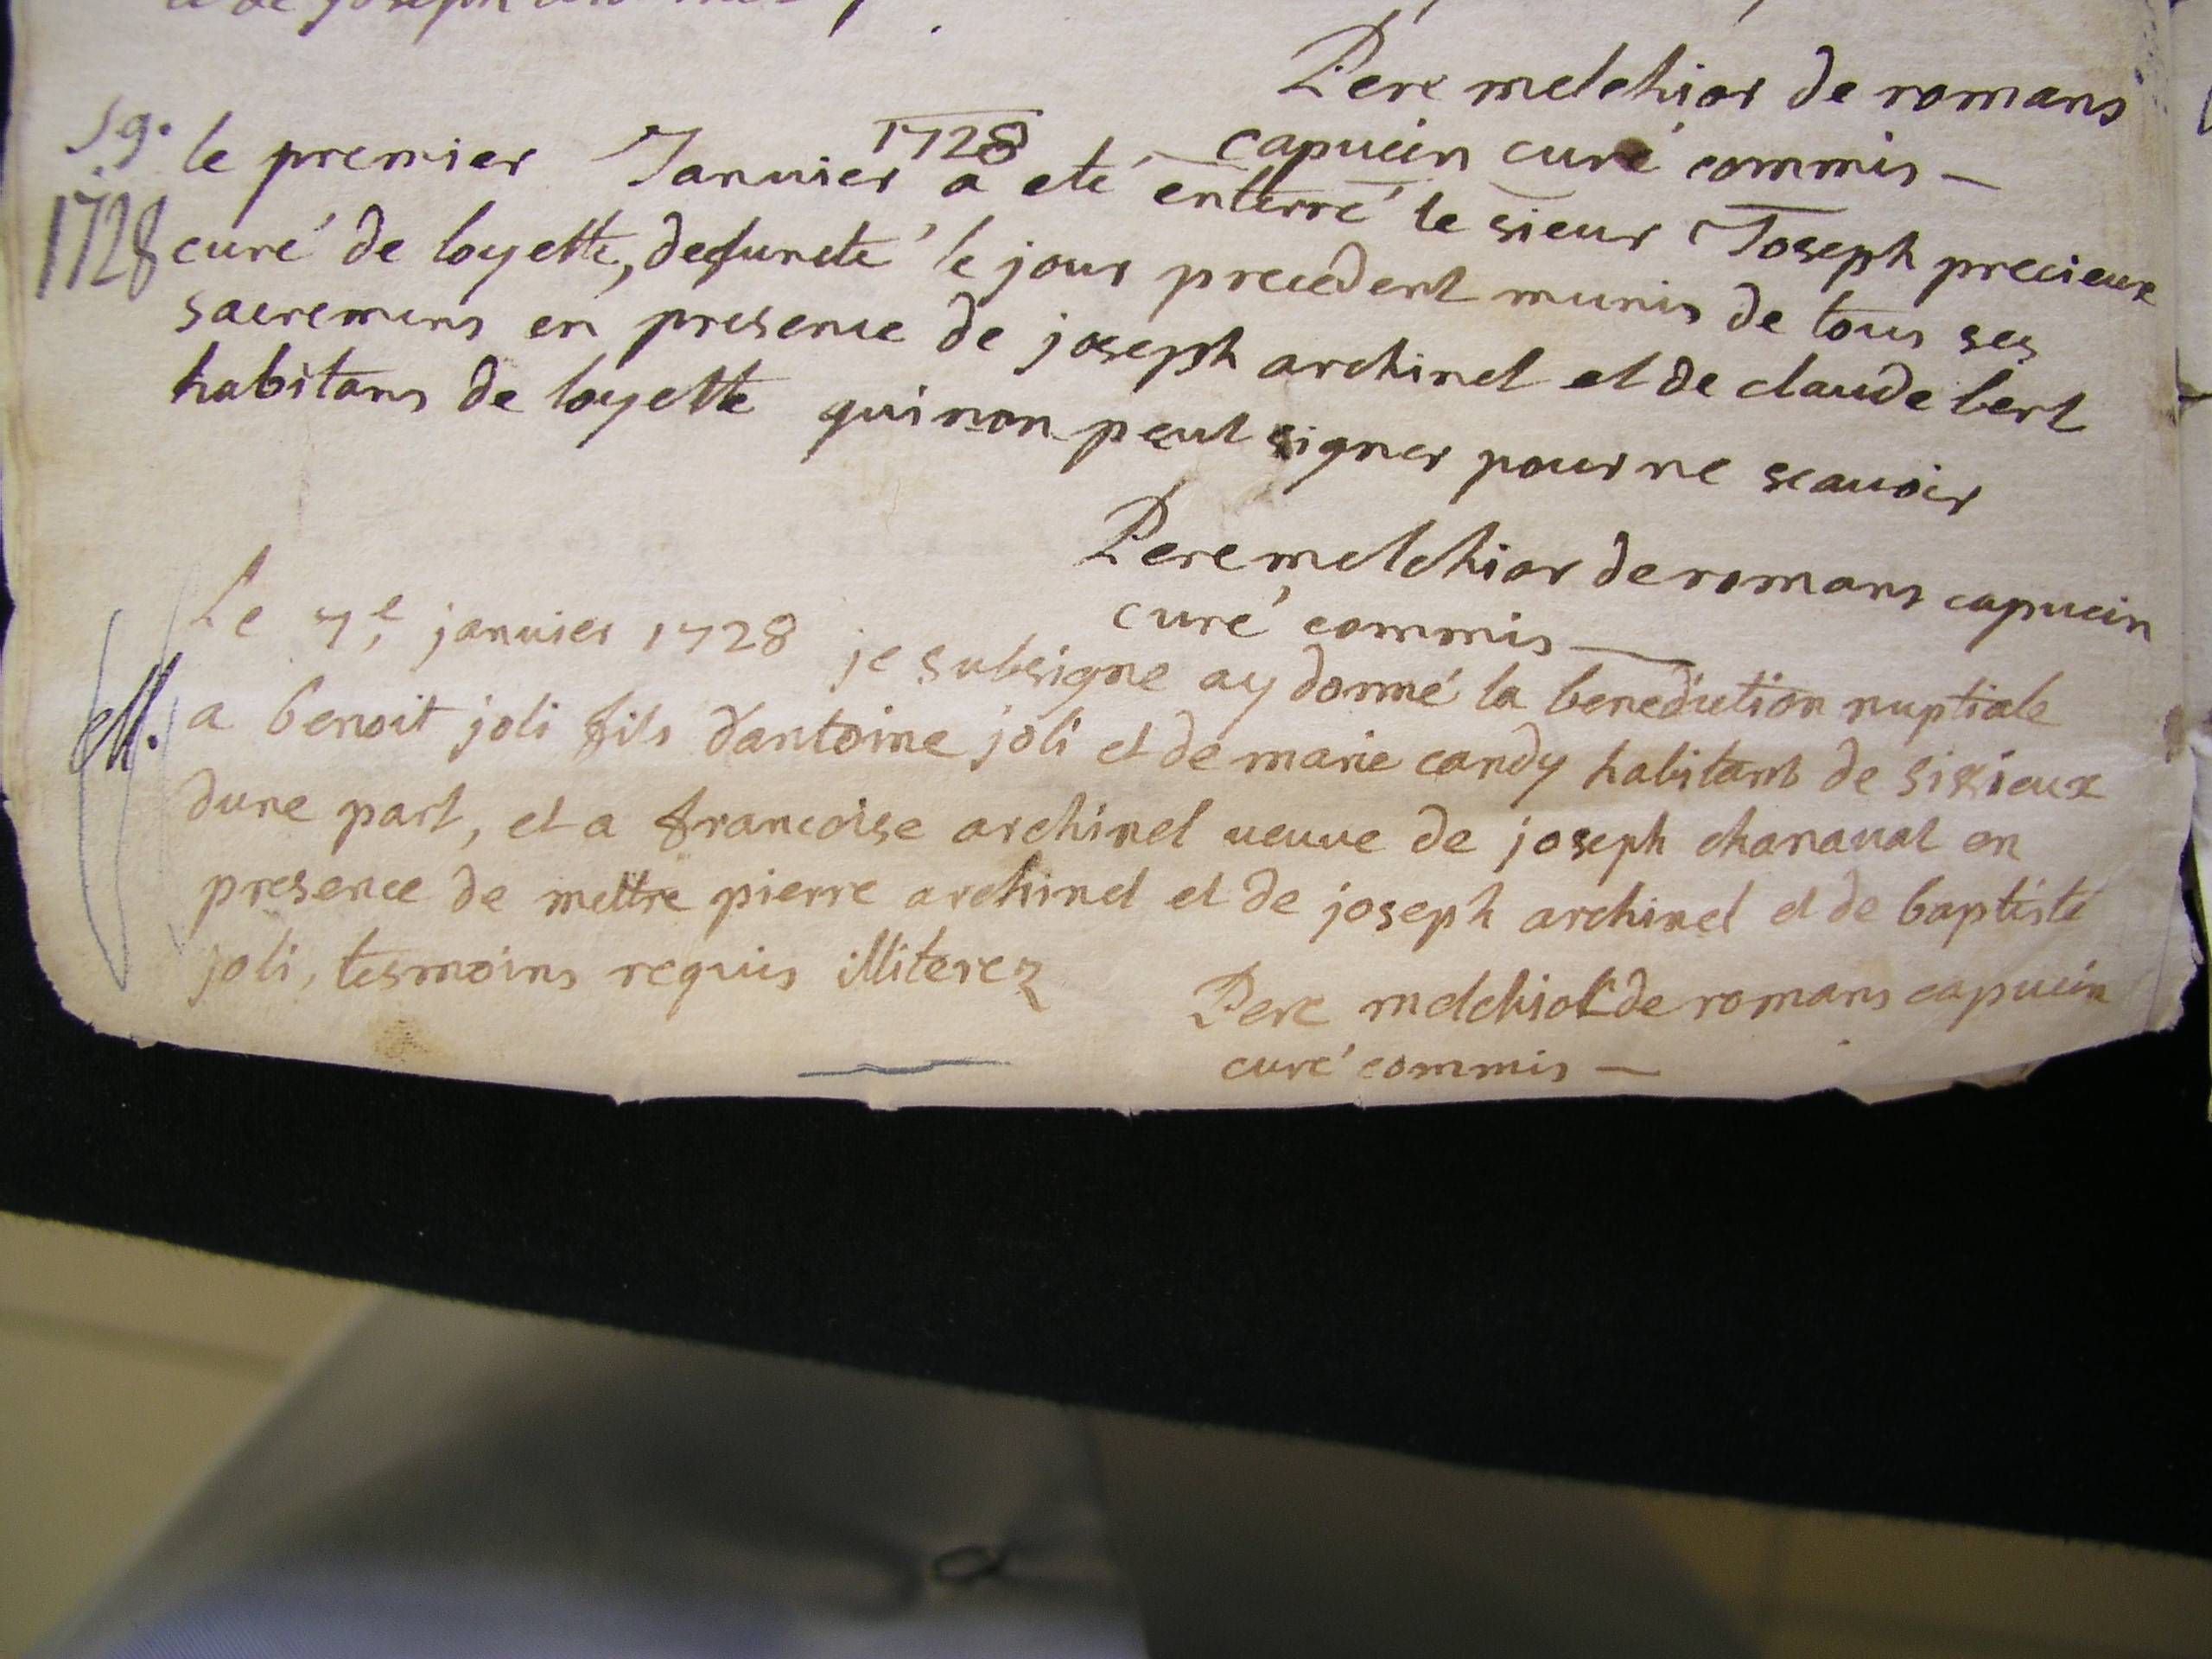 de joseph
Pere melchior de romans
capucin curé commis —
Sg.
1728
le premier Januier 1728 a eté enterré le sieur Joseph precieux
curé de loyette, defuncté le jour precedent munis de tous ses
sacremens en presence de joseph archinet et de claude bert
habitans de loyette qui non peut signer pour ne scauoir
Pere melchior de romans capucin
curé commis —
Le 7e, januier 1728 je subsigne ay donné la benediction nuptiale
a benoit joli fils dantoine joli et de marie candy habitant de sixieux
dune part, et a francoise archinet ueuue de joseph chanauat en
presence de mettre pierre archinet et de joseph archinet et de baptiste
joli, tesmoins requis illiterez
Pere melchior de romans capucin
curé commis —